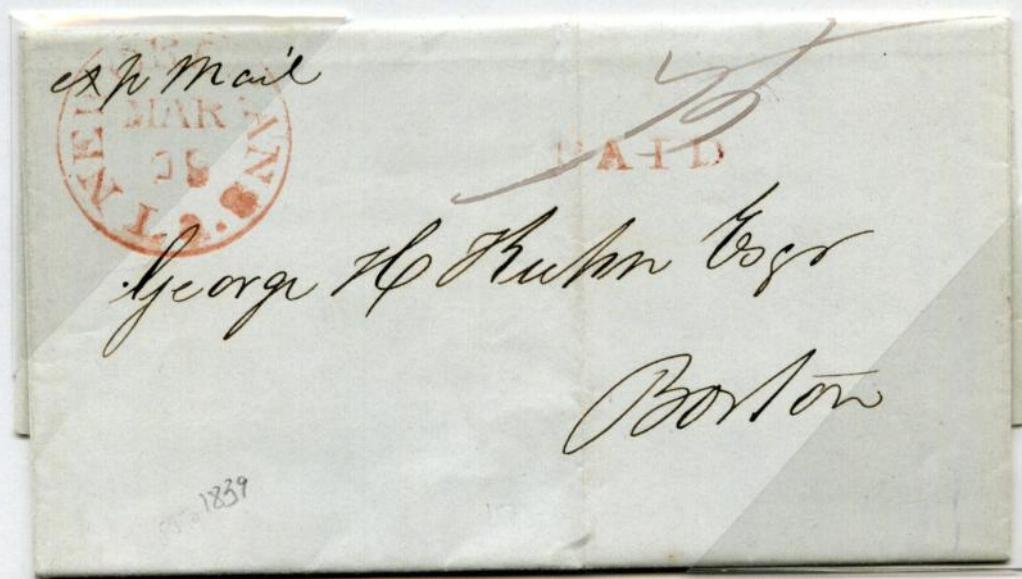 exp Mail
MAR
PAID
George H Kuhn Esqr
Boston
1839